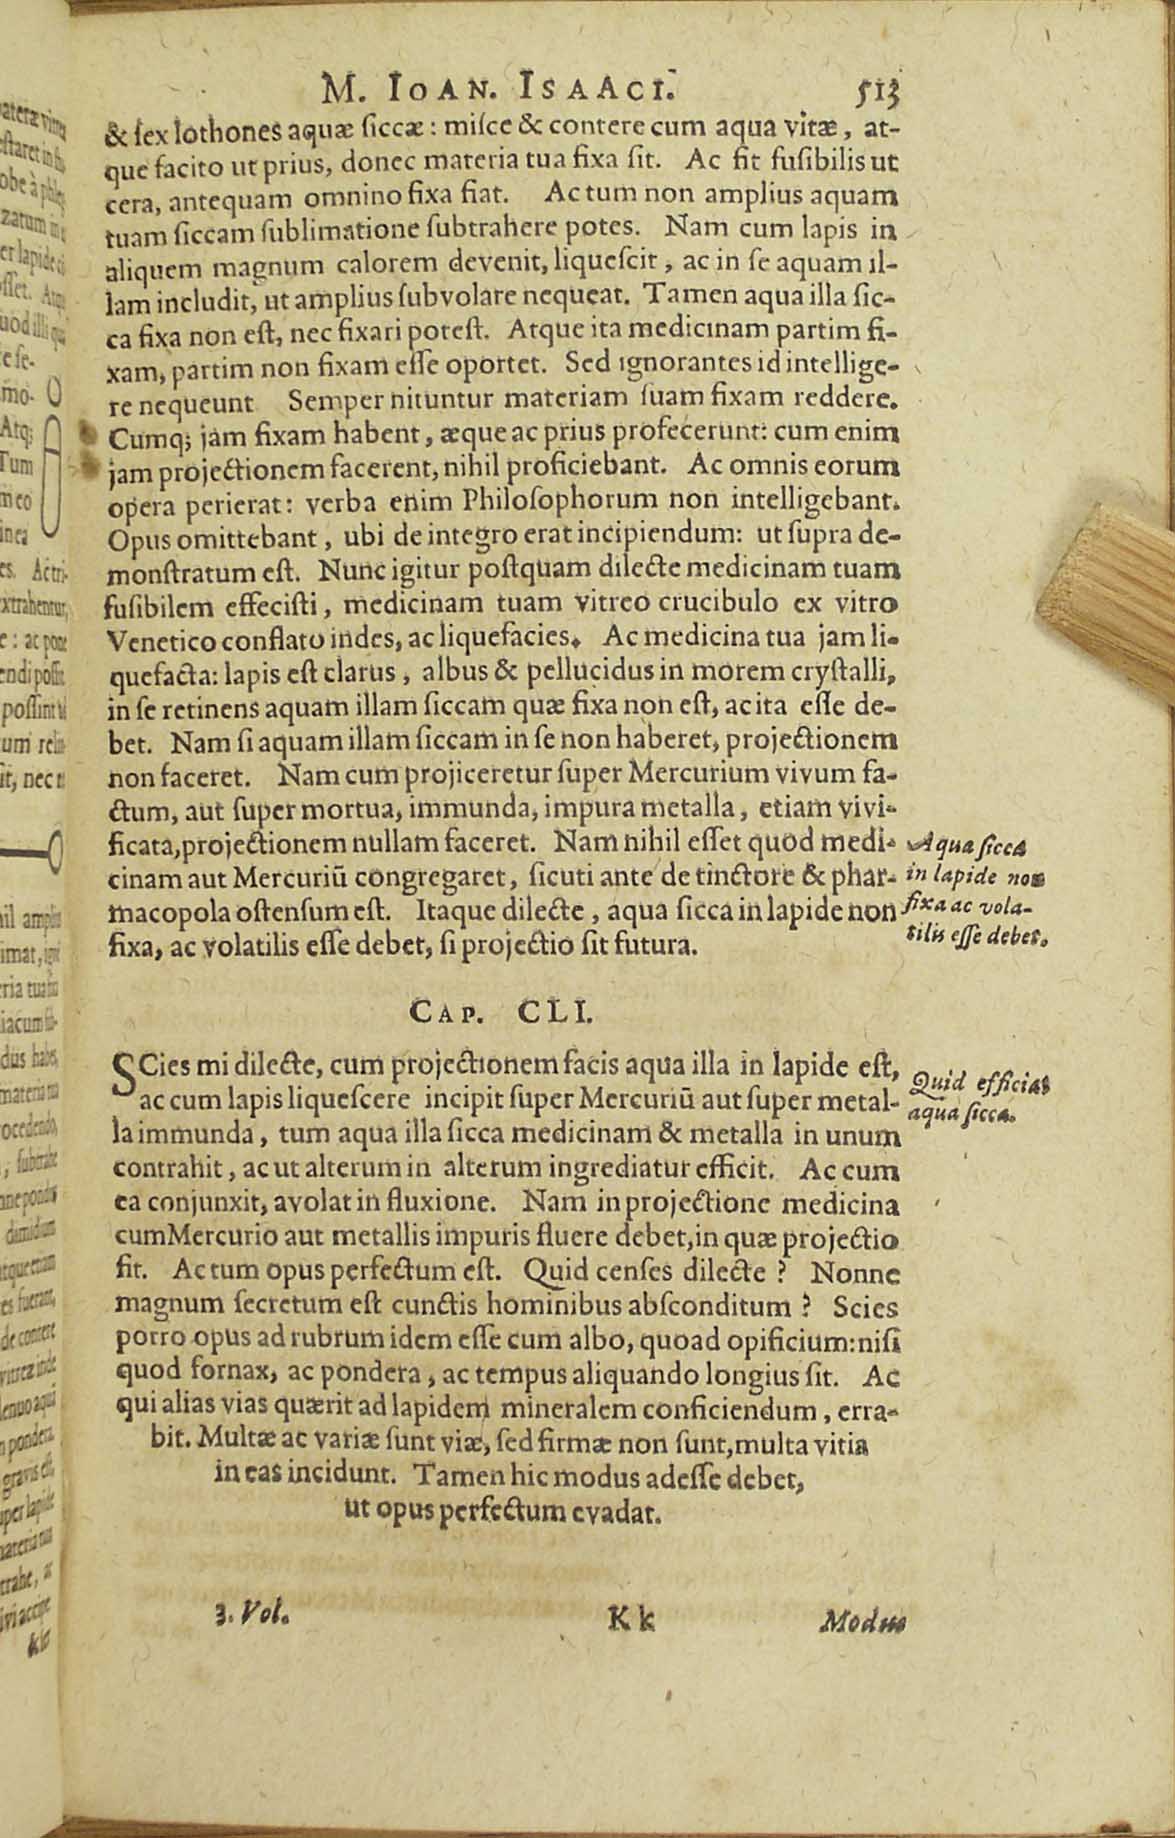 M. IOAN. ISAACI. 513
& ſex lothones aquæ ſiccæ: miſce & contere cum aqua vitæ, at-
que facito ut prius, donec materia tua fixa ſit. Ac fit fuſibilis ut
cera, antequam omnino fixa fiat. Ac tum non amplius aquam
tuam ſiccam ſublimatione ſubtrahere potes. Nam cum lapis in
aliquem magnum calorem devenit, liqueſcit, ac in ſe aquam il-
lam includit, ut amplius ſubvolare nequeat. Tamen aqua illa ſic-
ca fixa non eſt, nec fixari poteſt. Atque ita medicinam partim fi-
xam, partim non fixam eſſe oportet. Sed ignorantes id intellige-
re nequeunt Semper nituntur materiam ſuam fixam reddere.
Cumq; jam fixam habent, æque ac prius profecerunt: cum enim
jam projectionem facerent, nihil proficiebant. Ac omnis eorum
opera perierat: verba enim Philoſophorum non intelligebant.
Opus omittebant, ubi de integro erat incipiendum: ut ſupra de-
monſtratum eſt. Nunc igitur poſtquam dilecte medicinam tuam
fuſibilem effeciſti, medicinam tuam vitreo crucibulo ex vitro
Venetico conflato indes, ac liquefacies. Ac medicina tua jam li-
quefacta: lapis eſt clarus, albus & pellucidus in morem cryſtalli,
in ſe retinens aquam illam ſiccam quæ fixa non eſt, ac ita eſſe de-
bet. Nam ſi aquam illam ſiccam in ſe non haberet, projectionem
non faceret. Nam cum projiceretur ſuper Mercurium vivum fa-
ctum, aut ſuper mortua, immunda, impura metalla, etiam vivi-
ficata, projectionem nullam faceret. Nam nihil eſſet quod medi-
cinam aut Mercuriū congregaret, ſicuti ante de tinctore & phar-
macopola oſtenſum eſt. Itaque dilecte, aqua ſicca in lapide non
fixa, ac volatilis eſſe debet, ſi projectio ſit futura.
Aqua ſicca
in lapide non
fixa ac vola-
tilis eſſe debet.
CAP. CLI.
SCies mi dilecte, cum projectionem facis aqua illa in lapide eſt,
ac cum lapis liqueſcere incipit ſuper Mercuriū aut ſuper metal-
la immunda, tum aqua illa ſicca medicinam & metalla in unum
contrahit, ac ut alterum in alterum ingrediatur efficit. Ac cum
ea conjunxit, avolat in fluxione. Nam in projectione medicina
cum Mercurio aut metallis impuris fluere debet, in quæ projectio
fit. Ac tum opus perfectum eſt. Quid cenſes dilecte? Nonne
magnum ſecretum eſt cunctis hominibus abſconditum? Scies
porro opus ad rubrum idem eſſe cum albo, quoad opificium: niſi
quod fornax, ac pondera, ac tempus aliquando longius ſit. Ac
qui alias vias quærit ad lapidem mineralem conficiendum, erra-
bit. Multæ ac variæ ſunt viæ, ſed firmæ non ſunt, multa vitia
in eas incidunt. Tamen hic modus adeſſe debet,
ut opus perfectum evadat.
Quid efficiat
aqua ſicca.
3. Vol. Kk Modus